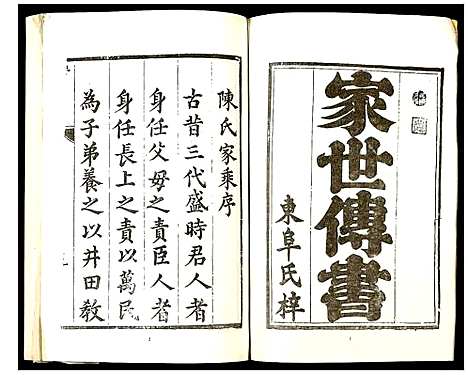 家世傳書
東阜氏梓
陳氏家乘序
古昔三代盛時君人者
身任父母之責臣人者
身任長上之責以萬民
為子弟養之以井田教